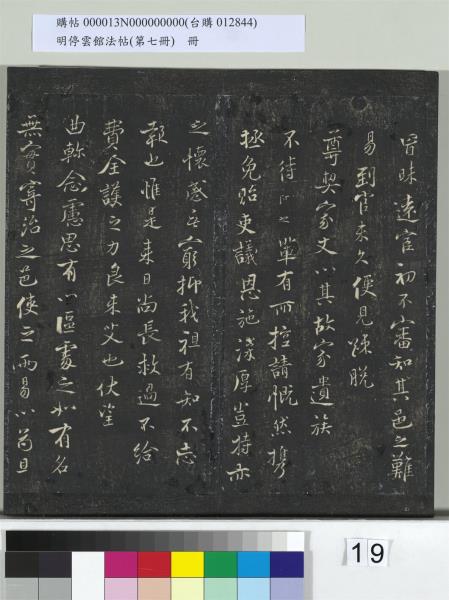 購帖 000013N000000000(台購 012844)
明停雲館法帖(第七冊) 冊
冒昧遠官初不審知其邑之難
易到官未久便見疎脫
尊契家丈以其故家遺族
不待 之輩有所控請慨然攜
拯免貽吏議恩施深厚豈特亦
之懷感言窮抑我祖有知不忘
報也惟是來日尚長救過不給
費全護之力良未艾也伏望
曲軫念慮思有以區處之如有名
無實寄治之邑使之兩易以苟且
19